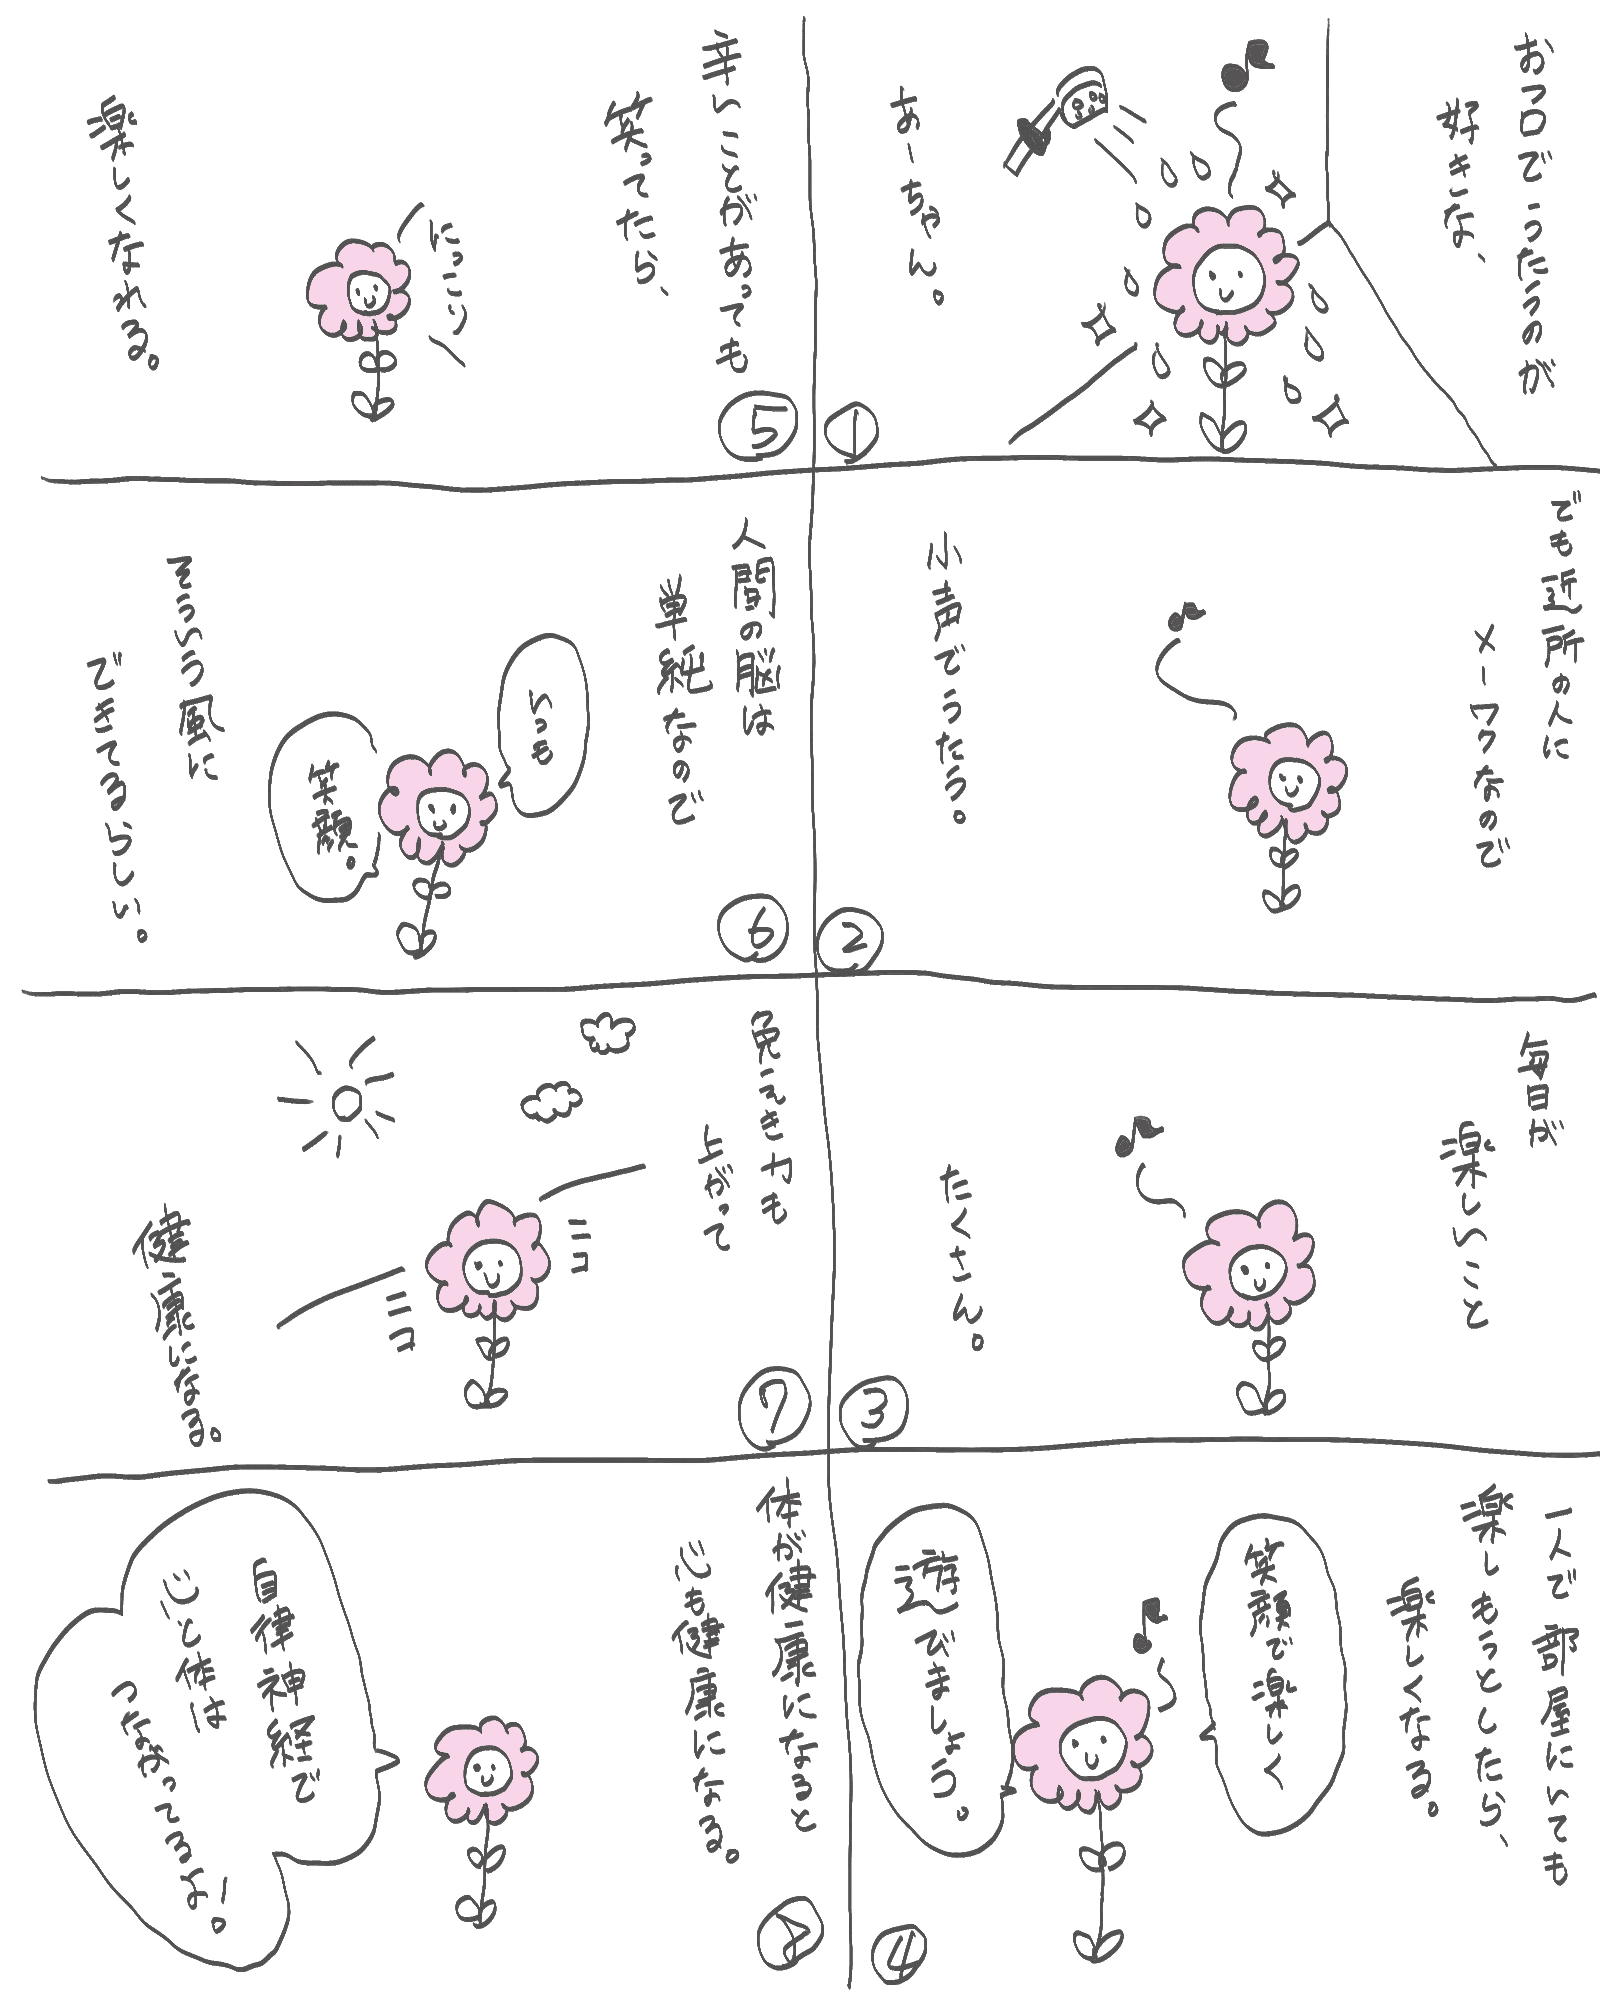 おフロでうたうのが
好きな、
あーちゃん。
①
でも近所の人に
メーワクなので
小声でうたう。
②
毎日が
楽しいこと
たくさん。
③
一人で部屋にいても
楽しもうとしたら、
楽しくなる。
笑顔で楽しく
遊びましょう。
④
辛いことがあっても
笑ってたら、
にっこり
楽しくなれる。
⑤
人間の脳は
単純なので
いつも
笑顔。
そういう風に
できてるらしい。
⑥
免えき力も
上がって
ニコ
ニコ
健康になる。
⑦
体が健康になると
心も健康になる。
自律神経で
心と体は
つながってるよ!
⑧